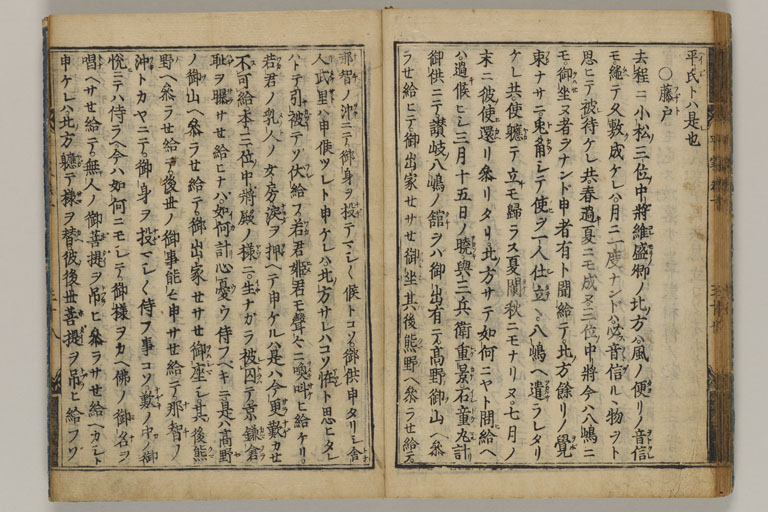 平氏トハ是也
○藤戸
去程ニ小松三位中將維盛卿ノ北方ハ風ノ便リノ音信
モ絶テ久敷成ケレハ月ニ一度ナンドハ必音信ルヘ物ヲト
思ヒテ被待ケレ共春過夏ニモ成ヌ三位中將今ハ八嶋ニ
モ御坐ヌ者ヲナンド申者有ト聞給テ北方餘リノ覺
束ナサニ兎角シテ使ヲ一人仕立テ八嶋ヘ遣ラレタリ
ケレ共使軈テ立モ歸ラス夏闌秋ニモナリヌ七月ノ
末ニ彼使還リ參リタリ北方サテ如何ニヤト問給ヘ
ハ過候ヒシ三月十五日ノ曉與三兵衛重景石童丸計
御供ニテ讃岐八嶋ノ舘ヲハ御出有テ高野御山ヘ參
ラセ給ヒテ御出家セサセ御坐其後熊野ヘ參ラセ給テ
那智ノ沖ニテ御身ヲ投テマシく候トコソ御供申タリシ舎
人武里ハ申候ツレト申ケレハ北方サレハコソ恠ト思ヒタレ
ハトテ引被テソ伏給フ若君姬君モ聲々ニ喚叫ヒ給ケリ
若君ノ乳人ノ女房淚ヲ押ヘテ申ケルハ是ハ今更歎カセ
不可給本三位中將殿ノ樣ニ生ナカラ被囚テ京鎌倉
耻ヲ曝サセ給ヒナハ如何計心憂ウ侍フヘキニ是ハ高野
ノ御山ヘ參ラセ給テ御出家セサセ御座シ其後熊
野ヘ參ラセ給テ後世ノ御事能ヒ申サセ給テ那智ノ
沖トカヤニテ御身ヲ投マシく侍フ事コソ歎ノ中ノ御
悅ニテハ侍ラヘ今ハ如何ニモシテ御樣ヲカヘ佛ノ御名ヲ
唱ヘサセ給テ無人ノ御菩提ヲ吊ヒ參ラサセ給ヘカシト
申ケレハ北方軈テ樣ヲ替彼後世菩提ヲ吊ヒ給フソ